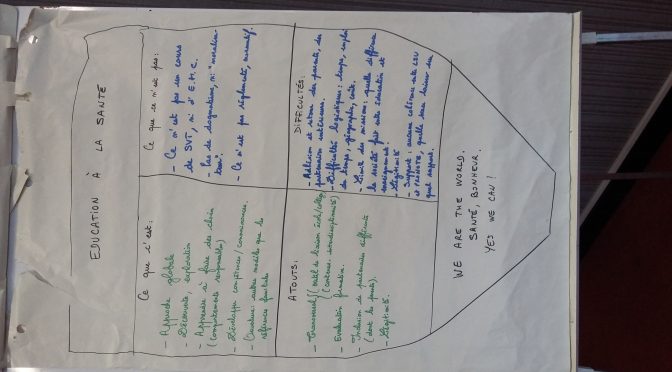 EDUCATION À LA SANTÉ
Ce que c'est:
- Approche globale
- Découverte, exploration
- Apprendre à faire des choix
(comportements responsables)
- Développe compétences / connaissances.
- Construire autres modèles que la
référence familiale
Ce que ce n'est pas:
- Ce n'est pas un cours
de SVT, ni d'E.M.C.
- Pas de dogmatisme, ni "moralisa-
tion".
- Ce n'est pas réglementé, normatif.
ATOUTS:
- Transversal (outil de liaison école/collège)
(contenu: interdisciplinarité)
- Evaluation formative.
- Inclusion de partenaires différents
(dont les parents).
- Légitimité.
DIFFICULTÉS:
- Adhésion et retour des parents, des
partenaires extérieurs.
- Difficultés logistiques: temps, emploi
du temps, géographie, coût.
- Limite des missions: quelle différence
la société fait entre éducation et
enseignement.
- Légitimité
- Support: aucune cohérence entre LSU
et FOLIOS, quelle sera
quel support.
WE ARE THE WORLD.
SANTÉ, BONHEUR.
YES WE CAN!